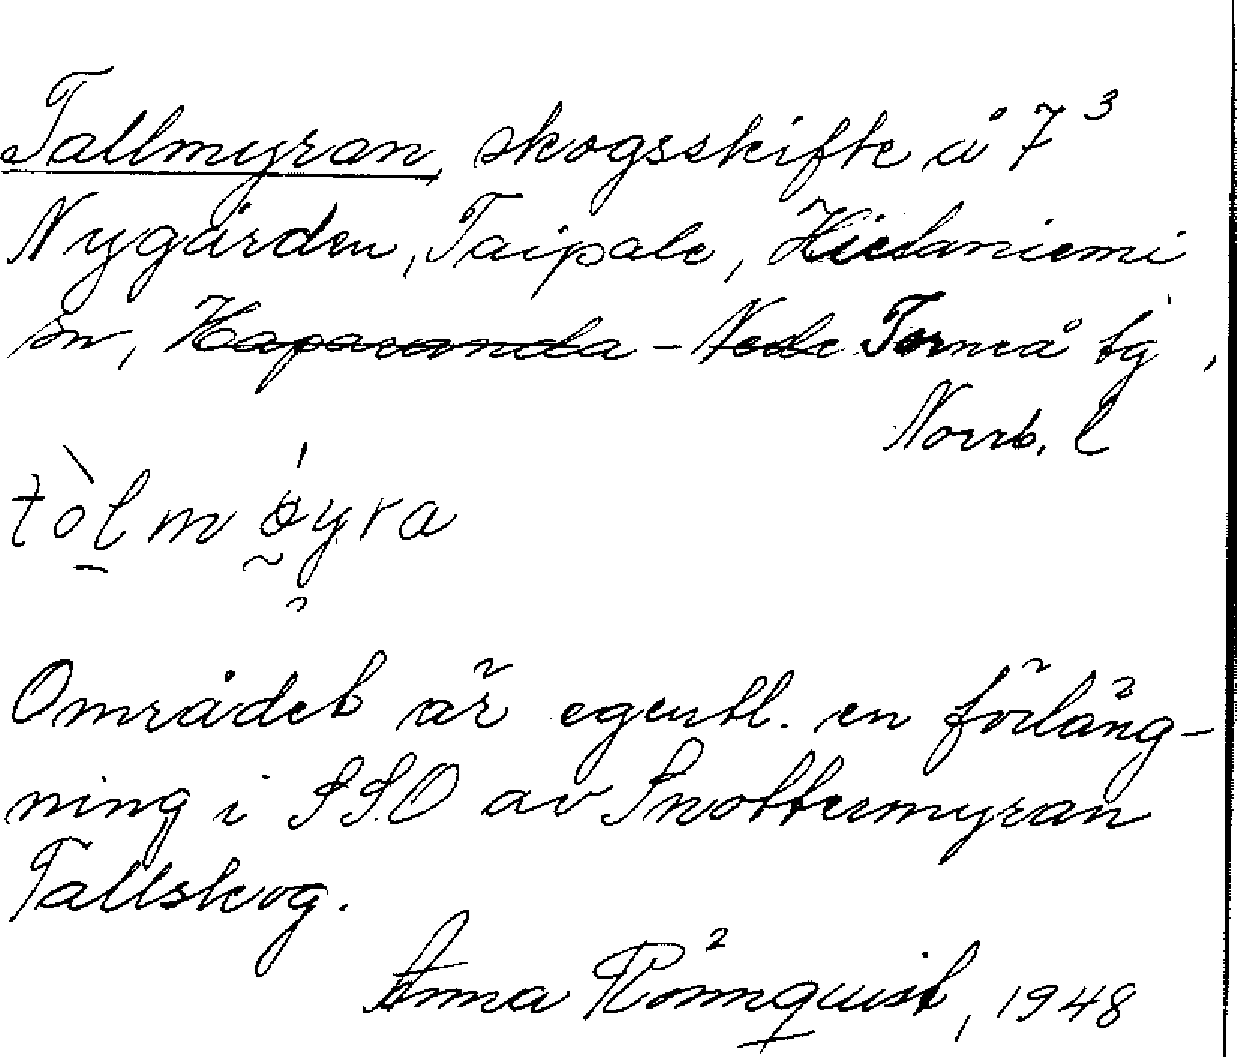 Tallmyran, skogsskifte å 7³
Nygården, Taipale, Hietaniemi
sn, Haparanda - Neder Torneå tg,
Norrb. l
tòlmýra
Området är egentl. en förläng-
ning i SSO av Snottermyran
Tallskog.
Anna Rönnquist, 1948